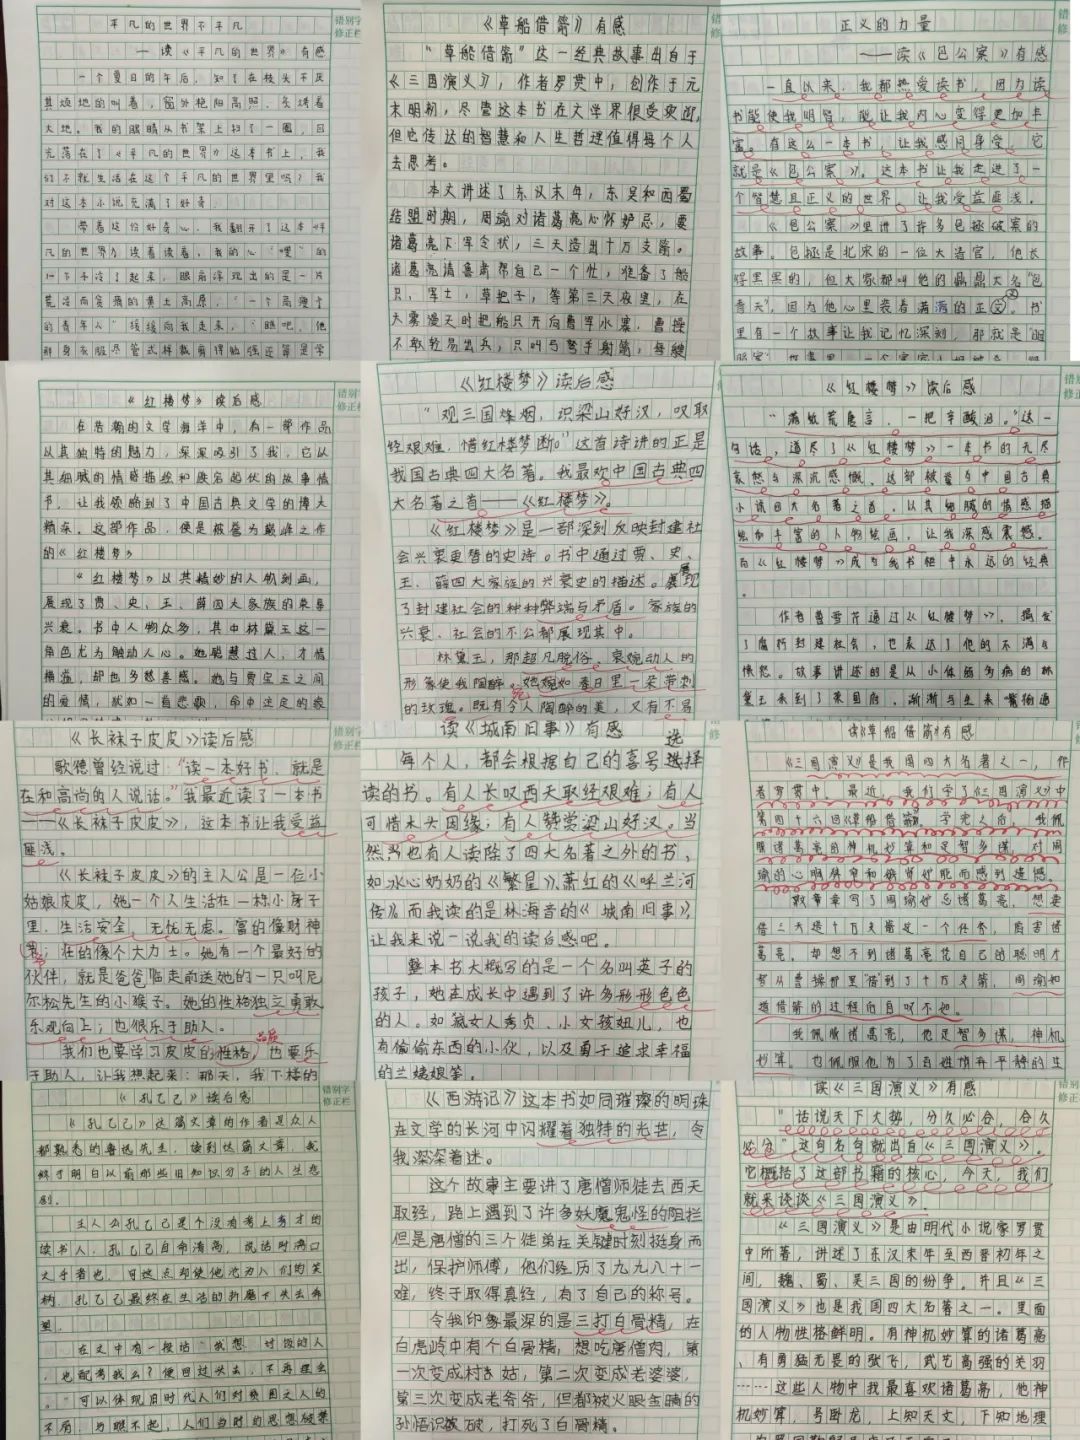 平凡的世界不平凡
——读《平凡的世界》有感
一个夏日的午后，知了在枝头不厌
其烦地的叫着，窗外艳阳高照，炙烤着
大地。我的眼睛从书架上扫了一圈，目
光落在了《平凡的世界》这本书上，我
们不就生活在这个平凡的世界里吗？我
对这本小说充满了好奇。
带着这份好奇心，我翻开了这本《平
凡的世界》读着读着，我的心"嘿"的
一下子冷了起来，眼前浮现出的是一片
荒凉而贫瘠的黄土高原，"一个高瘦
的青年人"缓缓向我走来，"瞧吧，他
那身衣服尽管式样裁剪得勉强还算是学
错别字
修正栏
《草船借箭》有感
"草船借箭"这一经典故事出自于
《三国演义》，作者罗贯中，创作于元
末明初，尽管这本书在文学界很受欢迎，
但它传达的智慧和人生哲理值得每个人
去思考。
本文讲述了东汉末年，东吴和西蜀
结盟时期，周瑜对诸葛亮心怀妒忌，要
诸葛亮下军令状，三天造出十万支箭。
诸葛亮请鲁肃帮自己一个忙，准备了船
只，军士，草把子，等第三天夜里，在
大雾漫天时把船只开向曹军水寨，曹操
不敢轻易出兵，只叫弓弩手射箭，每艘
正义的力量
——读《包公案》有感
一直以来，我都热爱读书，因为读
书能使我明智，能让我内心变得更加丰
富。有这么一本书，让我感同身受，它
就是《包公案》。这本书让我走进了一
个智慧且正义的世界，让我受益匪浅。
《包公案》里讲了许多包拯破案的
故事。包拯是北宋的一位大清官，他长
得黑黑的，但大家都叫他的鼎鼎大名"包
青天"，因为他心里装着满满的正义。书
里有一个故事让我记忆深刻，那就是
《红楼梦》读后感
在浩瀚的文学海洋中，有一部作品
以其独特的魅力，深深吸引了我，它以
其细腻的情感描绘和跌宕起伏的故事情
节，让我领略到了中国古典文学的博大
精深。这部作品，便是被誉为巅峰之作
的《红楼梦》
《红楼梦》以其精妙的人物刻画，
展现了贾、史、王、薛四大家族的荣辱
兴衰。书中人物众多，其中林黛玉这一
角色尤为触动人心。她聪慧过人，才情
横溢，却也多愁善感。她与贾宝玉之间
的爱情，犹如一首悲歌，命中注定的
错别
修正栏
《红楼梦》读后感
"观三国烽烟，识梁山好汉，叹取
经艰难，惜红楼梦断。"这首诗讲的正是
我国古典四大名著。我最欢中国古典四
大名著之首——《红楼梦》。
《红楼梦》是一部深刻反映封建社
会兴衰更替的史诗。书中通过贾、史、
王、薛四大家族的兴衰史的描述。展现
了封建社会的种种弊端与矛盾。家族的
兴衰、社会的不公都展现其中。
林黛玉，那超凡脱俗、哀婉动人的
形象使我陶醉。她宛如春日里一朵带刺
的玫瑰。既有令人陶醉的美，又有不易
《红楼梦》读后感
"满纸荒唐言，一把辛酸泪。"这一
句话，道尽了《红楼梦》一本书的无尽
哀愁与深沉感慨。这部被誉为中国古典
小说四大名著之首，以其细腻的情感描
绘和丰富的人物绘画，让我深感震感。
而《红楼梦》成为我书柜中永远的经典
。
作者曹雪芹通过《红楼梦》，揭发
了腐朽封建社会，也表达了他的不满与
愤怒。故事讲述的是从小体弱多病的林
黛玉来到了荣国府，渐渐与生来嘴衔通
错别
修正
《长袜子皮皮》读后感
歌德曾经说过："读一本好书，就是
在和高尚的人说话。"我最近读了一本书
——《长袜子皮皮》，这本书让我受益
匪浅。
《长袜子皮皮》的主人公是一位小
姑娘皮皮，她一个人生活在一栋小房子
里，生活安全，无忧无虑。富的像财神
爷；壮的像个大力士。她有一个最好的
伙伴，就是爸爸临走前送她的一只叫尼
尔松先生的小猴子。她的性格独立勇敢，
乐观向上；也很乐于助人。
我们也要学习皮皮的性格，也要乐
于助人，让我想起来：那天，我下楼的
读《城南旧事》有感
每个人，都会根据自己的喜号选择
读的书。有人长叹西天取经艰难；有人
可惜木头因缘；有人赞赏梁山好汉。当
然也有人读除了四大名著之外的书，
如冰心奶奶的《繁星》、萧红的《呼兰河
传》而我读的是林海音的《城南旧事》，
让我来说一说我的读后感吧。
整本书大概写的是一个名叫英子的
孩子，她在成长中遇到了许多形形色色
的人。如疯女人秀贞、小女孩妞儿，也
有偷偷东西的小伙，以及勇于追求幸福
的兰姨娘等。
读《草船借箭》有感
《三国演义》是我国四大名著之一，作
者罗贯中，最近，我们学了《三国演义》中
第四十六回《草船借箭》，学完之后，我佩
服诸葛亮的神机妙算和足智多谋，对周
瑜的心胸狭窄和嫉贤妒能而感到遗憾。
故事写了周瑜妒忌诸葛亮，想要
借三天造十万支箭这一个任务，陷害诸
葛亮，却想不到诸葛亮凭自己的聪明才
智从曹操那里"借"到了十万支箭，周瑜知
道借箭的过程后自叹不如。
我佩服诸葛亮，他足智多谋，神机
妙算。也佩服他为了百姓拥有平静的生
《孔乙己》读后感
《孔乙己》这篇文章的作者是众人
都熟悉的鲁迅先生，读到这篇文章，我
终于明白以前那些旧知识分子的人生悲
剧。
主人公孔乙己是个没有考上秀才的
读书人，孔乙己自命清高，说话时满口
之乎者也，可这点却使他沦为人们的笑
柄，孔乙己最终在生活的折磨下失去希
望。
在文中有一段话"我想，讨饭的人，
也配考我么？便回过头去，不再理会
。"可以体现旧时代人们对贫困之人的
不屑，与瞧不起，人们当时的思想被禁
错别字
修正栏
《西游记》这本书如同璀璨的明珠
在文学的长河中闪耀着独特的光芒，令
我深深着迷。
这个故事主要讲了唐僧师徒去西天
取经，路上遇到了许多妖魔鬼怪的阻拦
但是唐僧的三个徒弟在关键时刻挺身而
出，保护师傅，他们经历了九九八十一
难，终于取得真经，有了自己的称号。
令我印象最深的是三打白骨精，在
白虎岭中有个白骨精，想吃唐僧肉，第
一次变成村姑，第二次变成老婆婆，
第三次变成老爷爷，但都被火眼金睛的
孙悟识破，打死了白骨精。
读《三国演义》有感
"话说天下大势，分久必合，合久
必分"这句名句就出自《三国演义》。
它概括了这部书籍的核心，今天，我们
就来谈谈《三国演义》。
《三国演义》是由明代小说家罗贯
中所著，讲述了东汉末年至西晋初年之
间，魏、蜀、吴三国的纷争。并且《三
国演义》也是我国四大名著之一。里面
的人物性格鲜明。有神机妙算的诸葛亮
、有勇猛无畏的张飞，武艺高强的关羽
……这些人物中我最喜欢诸葛亮，他神
机妙算，号卧龙，上知天文，下知地理